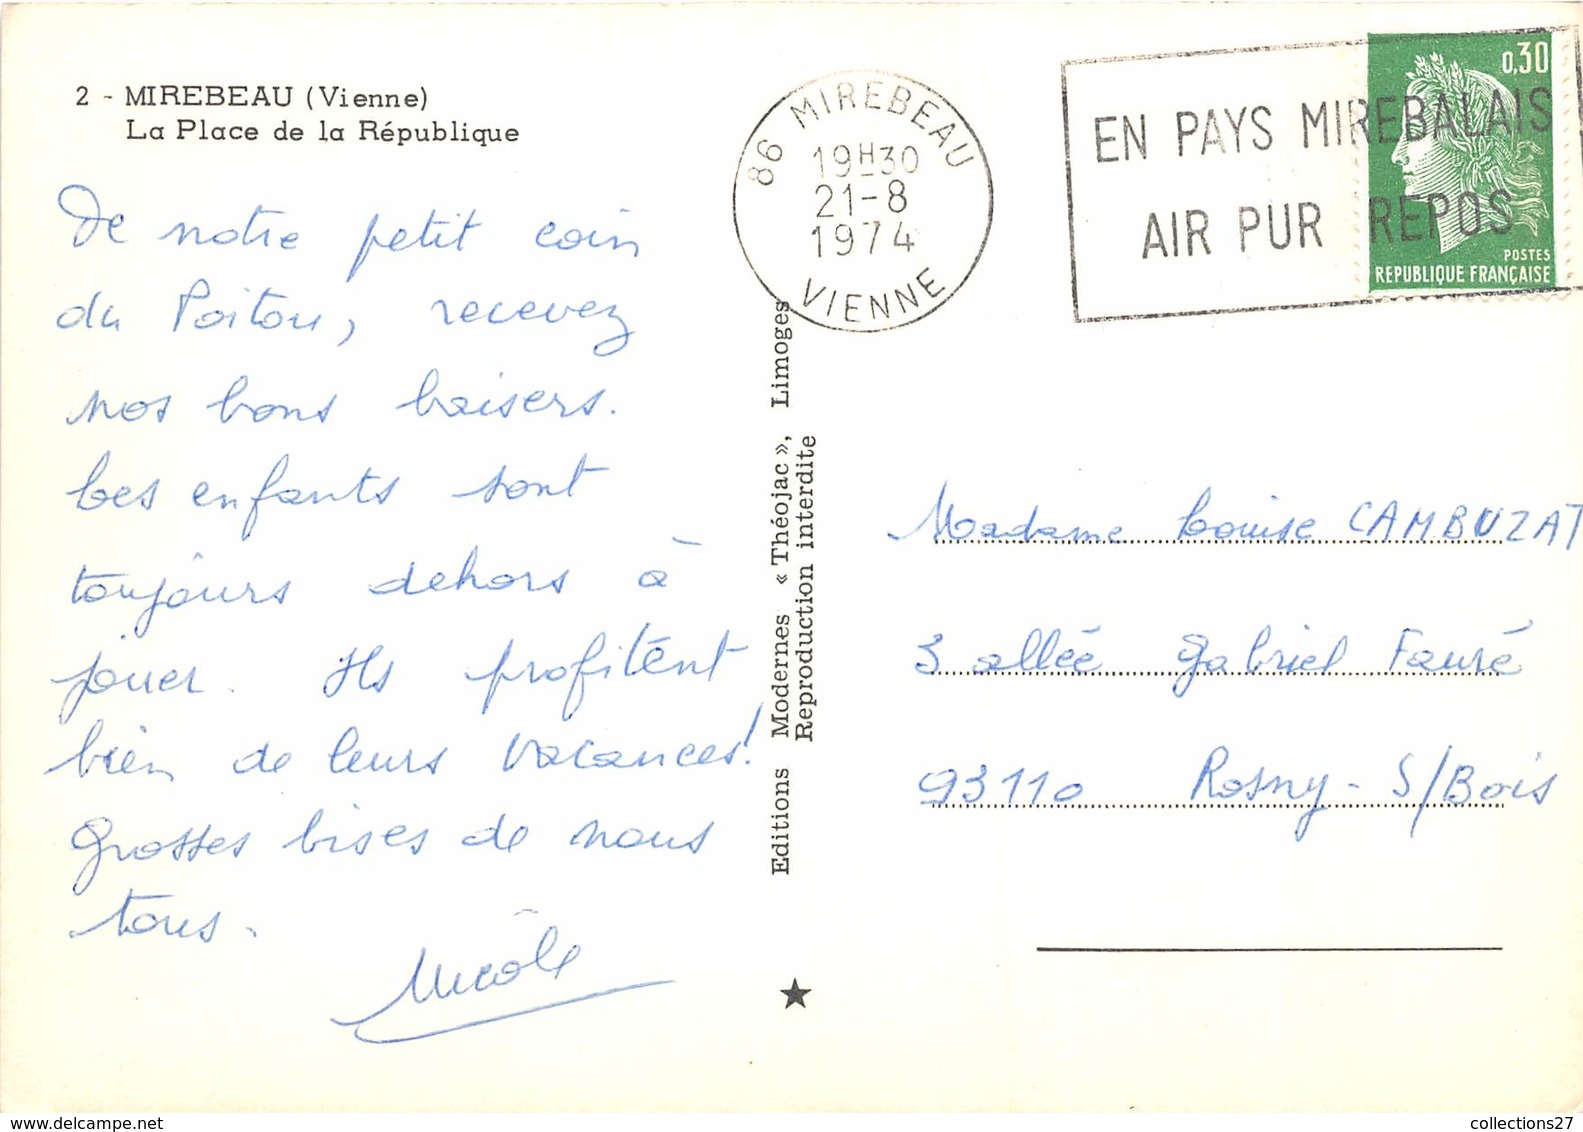 2 - MIREBEAU (Vienne)
La Place de la République
De notre petit coin
du Poitou, recevez
nos bons baisers.
Les enfants sont
toujours dehors à
jouer. Ils profitent
bien de leurs vacances!
Grosses bises de nous
tous.
Nicole
Editions Modernes « Théojac », Limoges
Reproduction interdite
86 MIREBEAU
19H30
21-8
1974
VIENNE
EN PAYS MIREBALAIS
AIR PUR REPOS
0,30
POSTES
REPUBLIQUE FRANÇAISE
Madame Louise CAMBUZAT
3 allée Gabriel Fauré
93110 Rosny-S/Bois
collections27